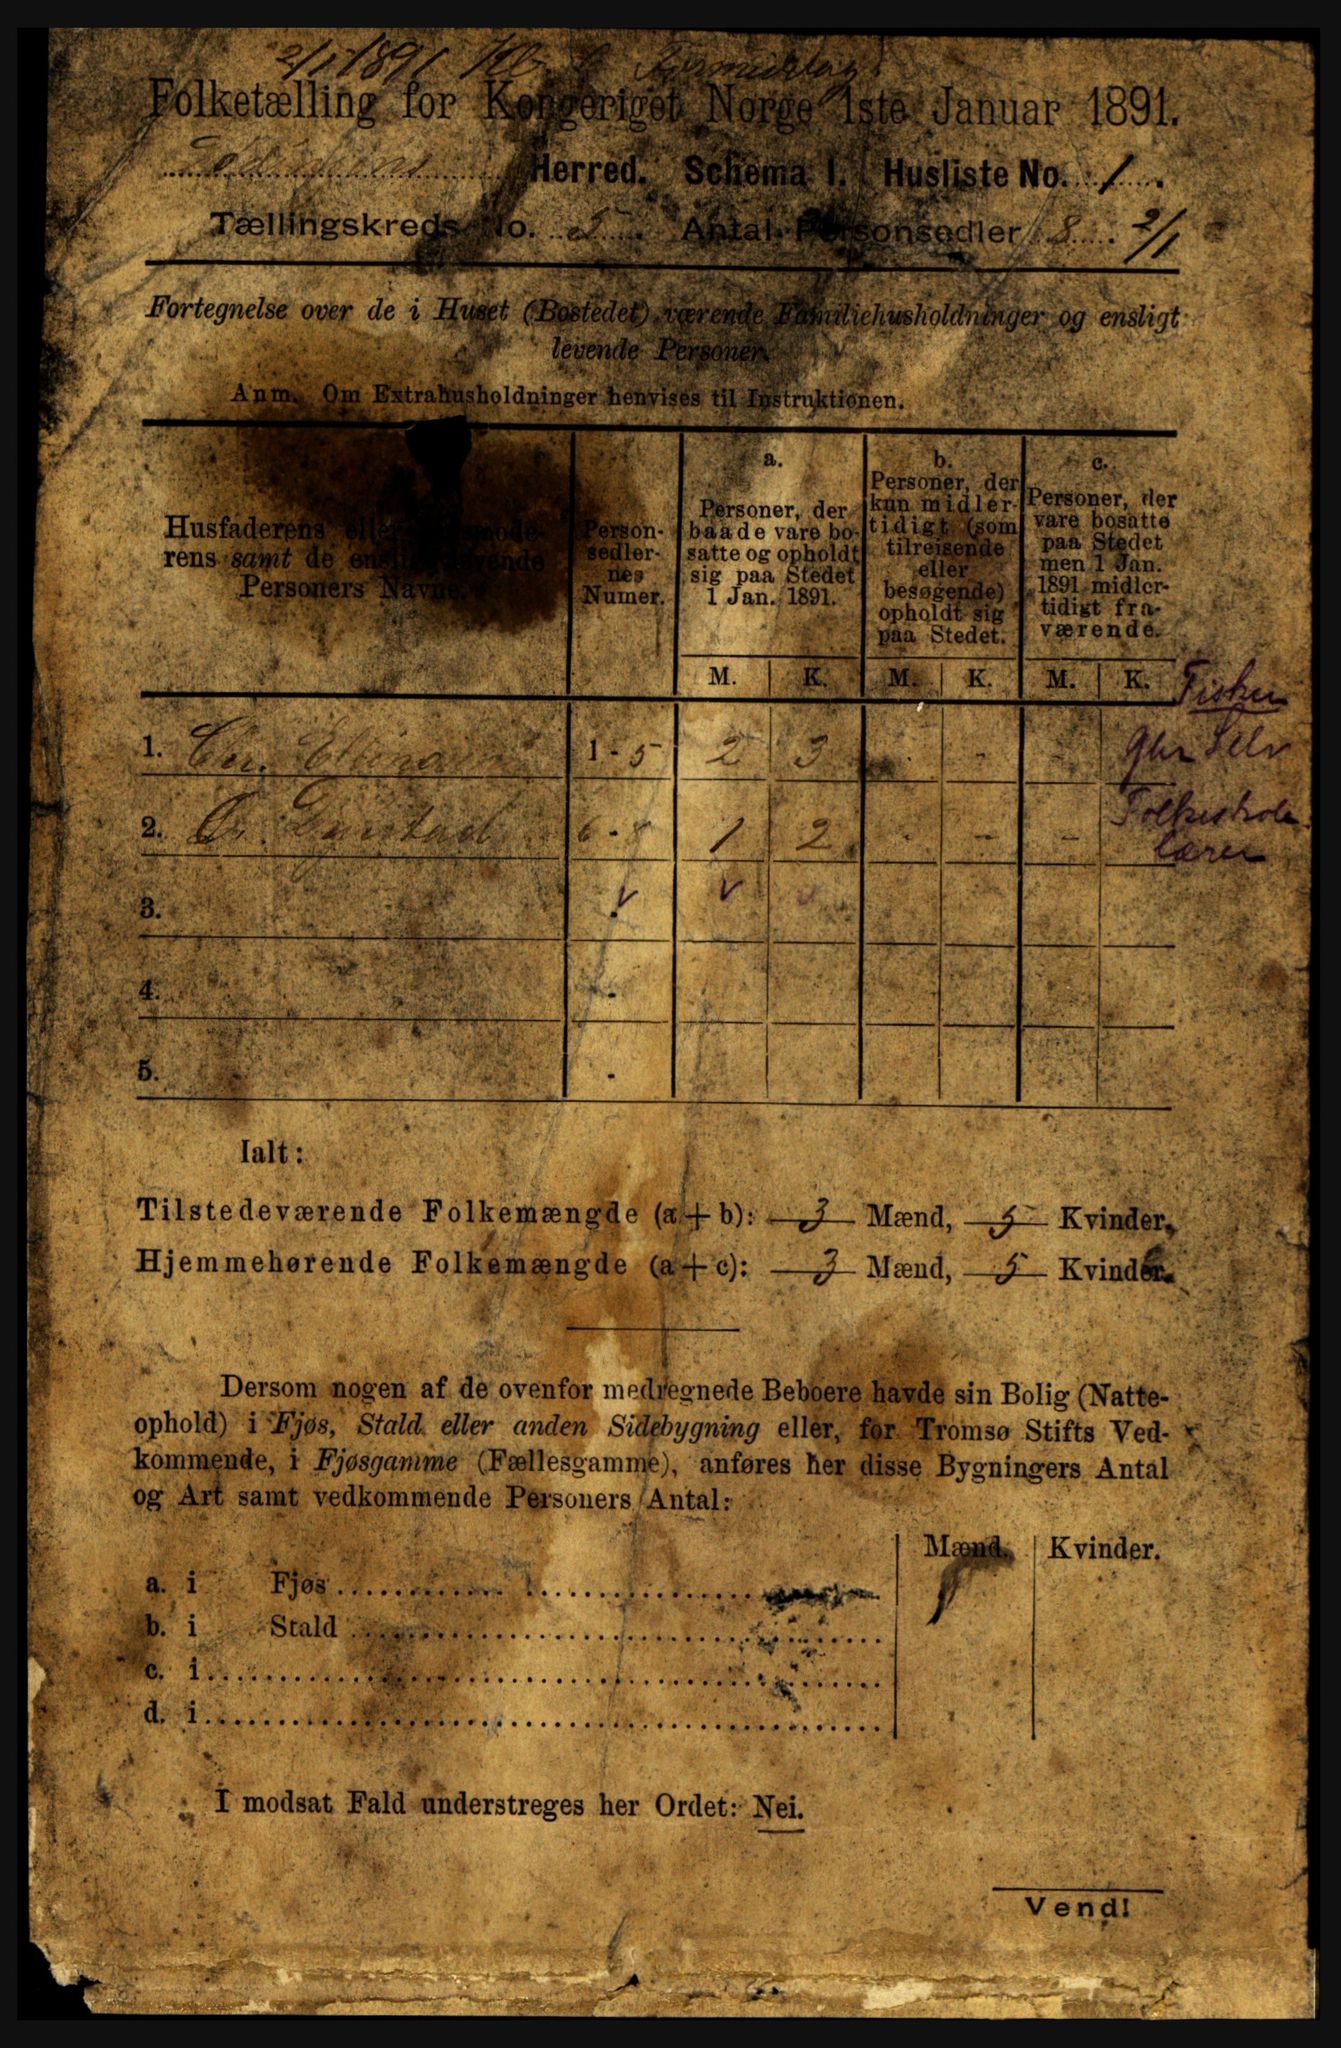 2/1 1891 Kl. 6 Formiddag.
Folketælling for Kongeriget Norge 1ste Januar 1891.
Herred. Schema I. Husliste No. 1.
Tællingskreds No. 5. Antal Personsedler 8. 2/1
Fortegnelse over de i Huset (Bostedet) værende Familiehusholdninger og ensligt
levende Personer.
Anm. Om Extrahusholdninger henvises til Instruktionen.
Husfaderens eller Husmode-
rens samt de ensligt levende
Personers Navne.
Person-
sedler-
nes
Numer.
a.
Personer, der
baade vare bo-
satte og opholdt
sig paa Stedet
1 Jan. 1891.
b.
Personer, der
kun midler-
tidigt (som
tilreisende
eller
besøgende)
opholdt sig
paa Stedet.
c.
Personer, der
vare bosatte
paa Stedet
men 1 Jan.
1891 midler-
tidigt fra-
værende.
M. K. M. K. M. K. Fisker
1. 1 - 5 2 3 . - - Gbr Selv
2. 6 - 8 1 2 - - - Folkeskole
lærer
3. .
4. -
5. -
Ialt:
Tilstedeværende Folkemængde (a+b): 3 Mænd, 5 Kvinder.
Hjemmehørende Folkemængde (a+c): 3 Mænd, 5 Kvinder.
Dersom nogen af de ovenfor medregnede Beboere havde sin Bolig (Natte-
ophold) i Fjøs, Stald eller anden Sidebygning eller, for Tromsø Stifts Ved-
kommende, i Fjøsgamme (Fællesgamme), anføres her disse Bygningers Antal
og Art samt vedkommende Personers Antal:
Mænd. Kvinder.
a. i Fjøs
b. i Stald
c. i
d. i
I modsat Fald understreges her Ordet: Nei.
Vend!